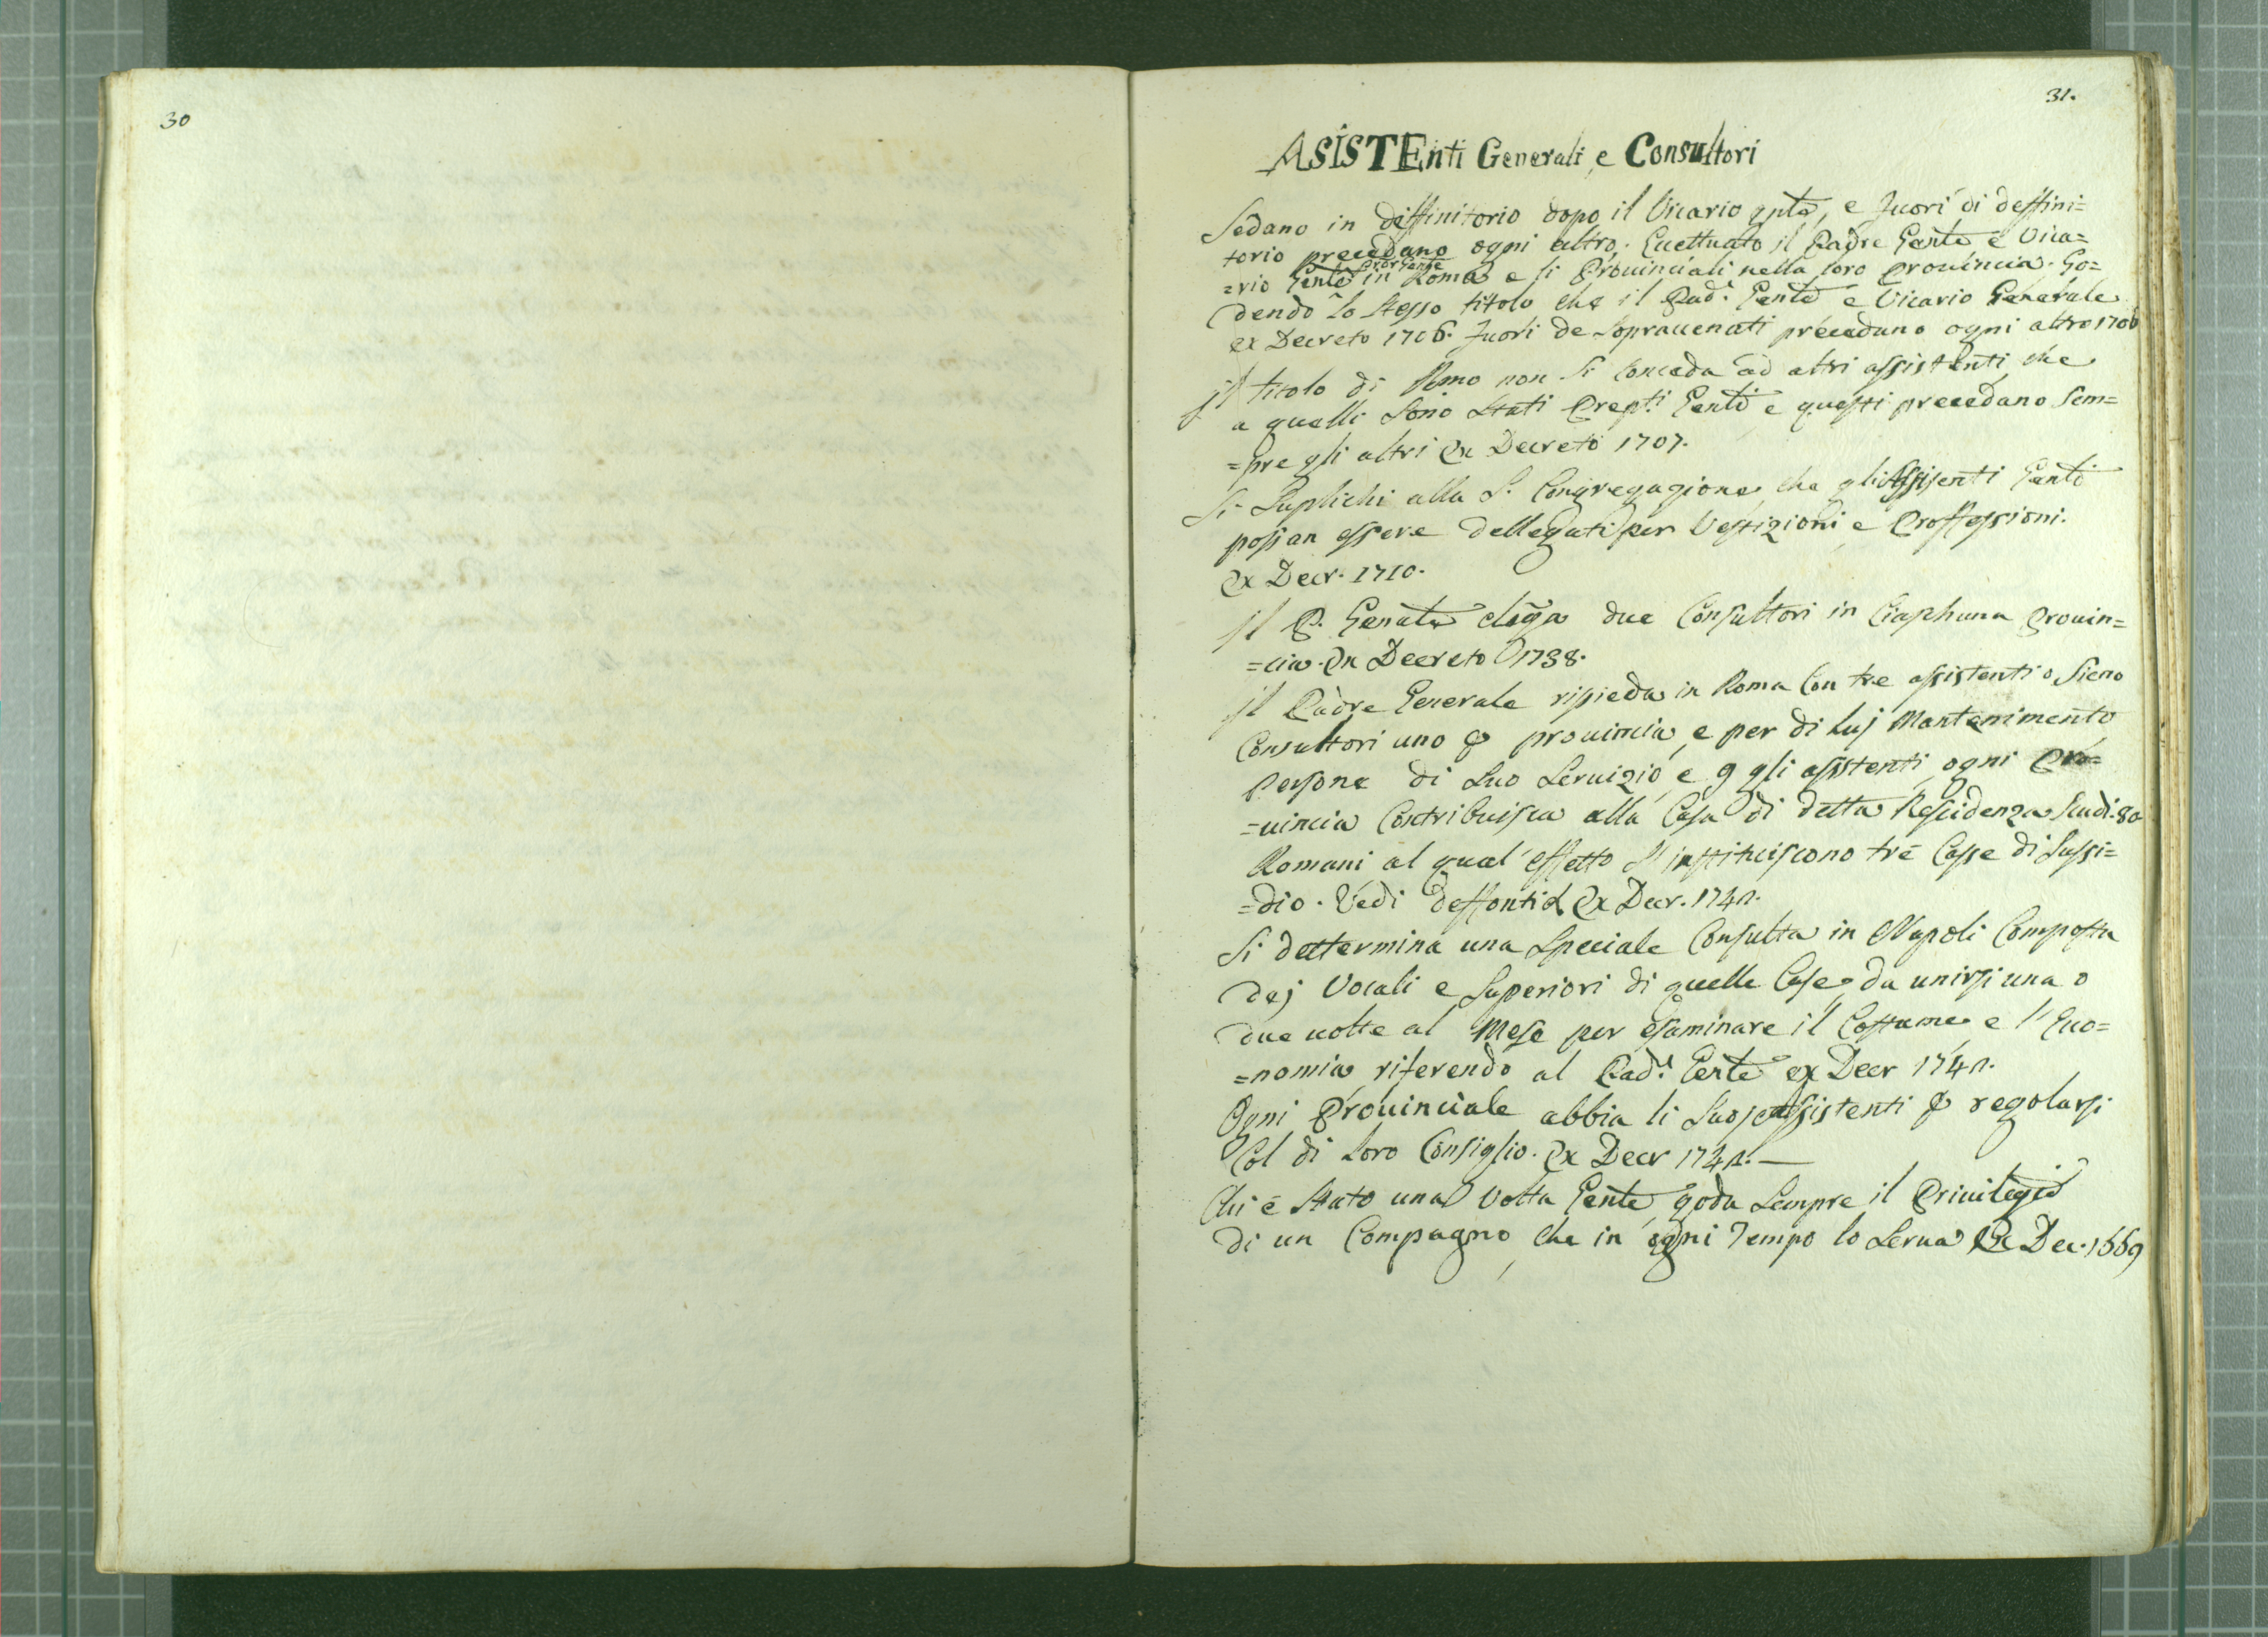 30
31.
ASISTEnti Generali, e Consultori
Sedano in diffinitorio dopo il Vicario gnle, e fuori di deffini=
torio precedano ogni altro. Eccettuato il Padre Genle e Vica=
=rio Genle in Roma e li Prouinciali nella loro prouincia. Go=
Pror Genle
dendo lo stesso titolo che il Pad.e Genle e Vicario Generale
ex Decreto 1706. fuori de sopraccenati precedano ogni altro 1706
il titolo di Rmo non si conceda ad altri assistenti, che
a quelli sono stati Prepti Genli e questi precedano sem=
=pre gli altri Ex Decreto 1707.
Si Suplichi alla S. Congregazione, che gli Assisenti Genli
possan essere dellegati per Vestizioni e Proffessioni.
Ex Decr. 1710.
il P. Genale eliga due Consultori in Ciaschuna prouin=
=cia. Ex Decreto 1738.
il Padre Generale risieda in Roma Con tre assistenti o sieno
Consultori uno ꝑ prouincia, e per di luj Mantenimento
Persone di suo Seruizio, e ꝑ gli assistenti, ogni Pro=
=uincia Contribuisca alla Casa di detta Rescidenza Scudi. 80
Romani al qual' effetto s' instituiscono tre Casse di Sussi=
=dio. Vedi deffonti Ex Decr.
Si dettermina una Speciale Consulta in Napoli Composta
dej Vocali e Superiori di quelle Case, da unirsi una o
due uolte al Mese per esaminare il Costume, e l' Eco=
=nomia, riferendo al Pad.e Genle ex Decr
Ogni Prouinciale abbia li suoj assistenti ꝑ regolarsi
Col di loro Consiglio. Ex Decr
Chi è stato una volta Genle, goda sempre il Priuilegio
di un Compagno, che in ogni Tempo lo serua Ex Dec. 1669